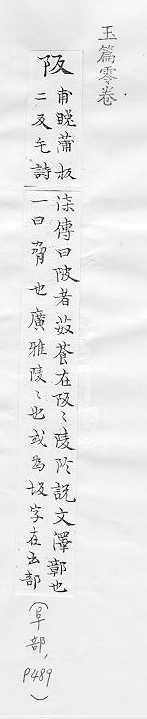 玉篇零卷
阪
甫晚蒲板
二反毛詩
柒傳曰陂者茲蒼在阪〻陵阾說文澤鄣也
一曰脅也廣雅陵〻也或為坂字在土部
(阜部, P489)